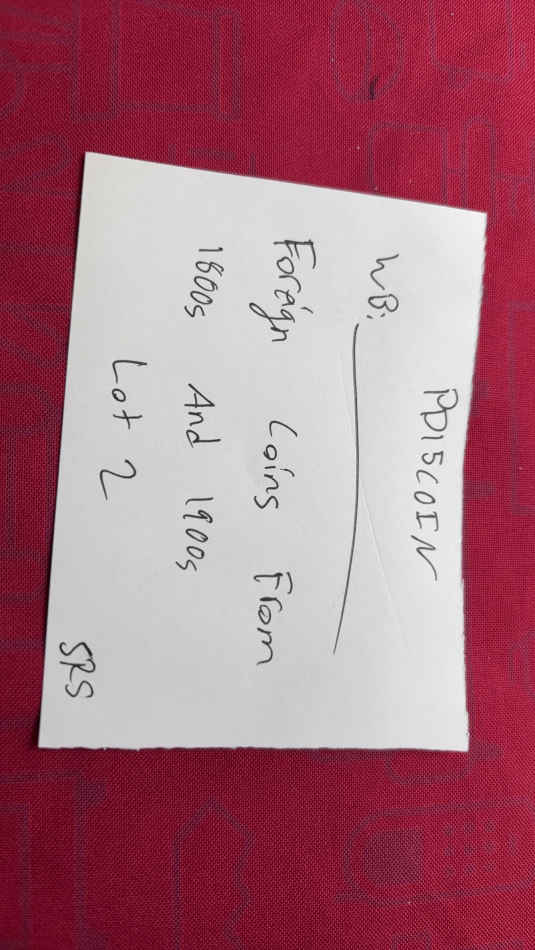 PD15COIN
WB:
Foreign Coins From
1800s And 1900s
Lot 2
SRS